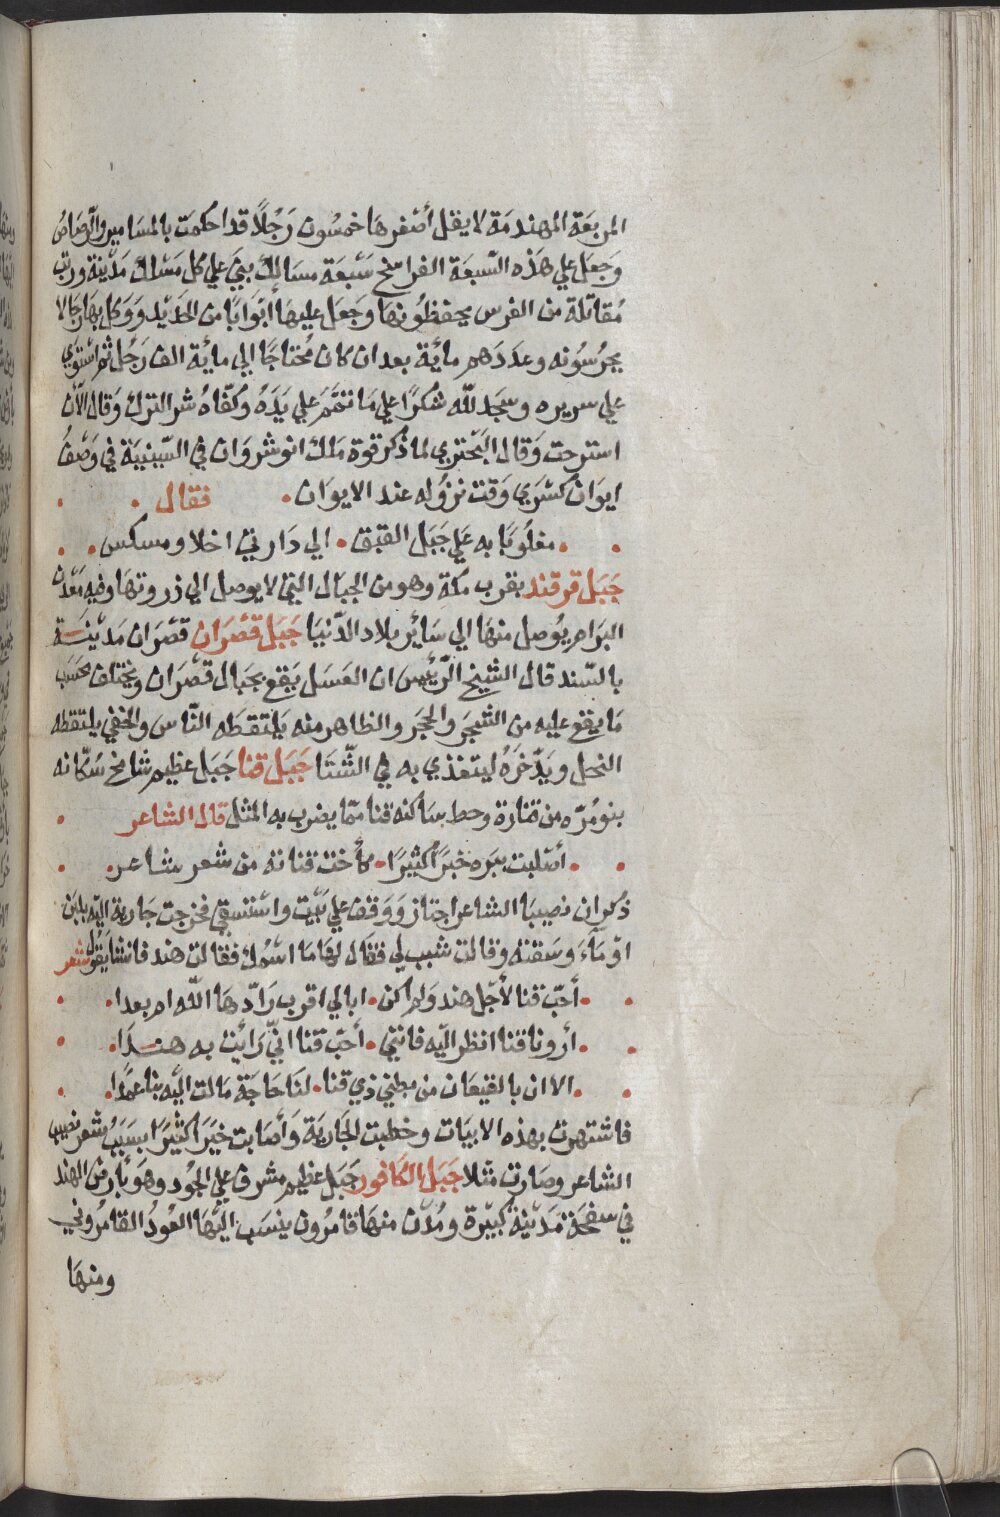 المربعة المهندمة لا يقل أصغرها خمسون رجلاً قد احكمت بالمسامير والرصاص
وجعل علي هذه السبعة الفراسخ سبعة مسالك بني علي كل مسلك مدينة ورتب
مقاتلة من الفرس يحفظونها وجعل عليها أبوابا من الحديد ووكل بها رجالا
يحرسونه وعددهم مائة بعد ان كان محتاجا الي مائة الف رجل ثم استوي
علي سريره وسجد لله شكرا علي ما تتمم علي يده وكفاه شر الترك وقال الآن
استرحت وقال البحتري لما ذكر قوة ملك انوشروان في السينية في وصف
ايوان كسري وقت نزوله عند الايوان فقال
مغلوبا به علي جبل القبق الي دارتي اخلا ومسكس
جبل قرقند بقرب مكة وهو من الجبال التي لا يوصل الي ذروتها وفيه معدن
البرام يوصل منها الي سائر بلاد الدنيا جبل قصران قصران مدينة
بالسند قال الشيخ الرئيس ان العسل يقع بجبال قصران ويختلف بحسب
ما يقع عليه من الشجر والحجر والظاهر منه يلتقطه الناس والخفي يلتقطه
النحل ويدخره ليتغذي به في الشتا جبل قنا جبل عظيم شامخ سكانه
بنو مره من فزارة وحط ساكنه قنا مما يضرب به المثل قال الشاعر
أصلبت ببره خبرا كثيرا كأخت قنانة من شعر شاعر
ذكر ان نصيبا الشاعر اجتاز ووقف علي بيت واستسقي فخرجت جارية اليه بلبن
او ماء وسقته وقالت شبب لي فقال لها ما اسمك فقالت هند فانشا يقول شعر
أحب قنا لأجل هند ولم اكن ابالي اقرب رادها الله ام بعدا
أرونا قنا انظر اليه فانني أحب قنا اني رائيت به هندا
الا ان بالقيعان من بطني ذي قنا لنا حاجة مالت اليه بنا عمدا
فاشتهرت بهذه الابيات وخطبت الجارية وأصابت خيرا كثيرا بسبب شعر نصيب
الشاعر وصارت مثلا جبل الكافور جبل عظيم مشرف علي الجود وهو بارض الهند
في سفحة مدينة كبيرة ومدن منها قامرون ينسب اليها العود القامروني
ومنها